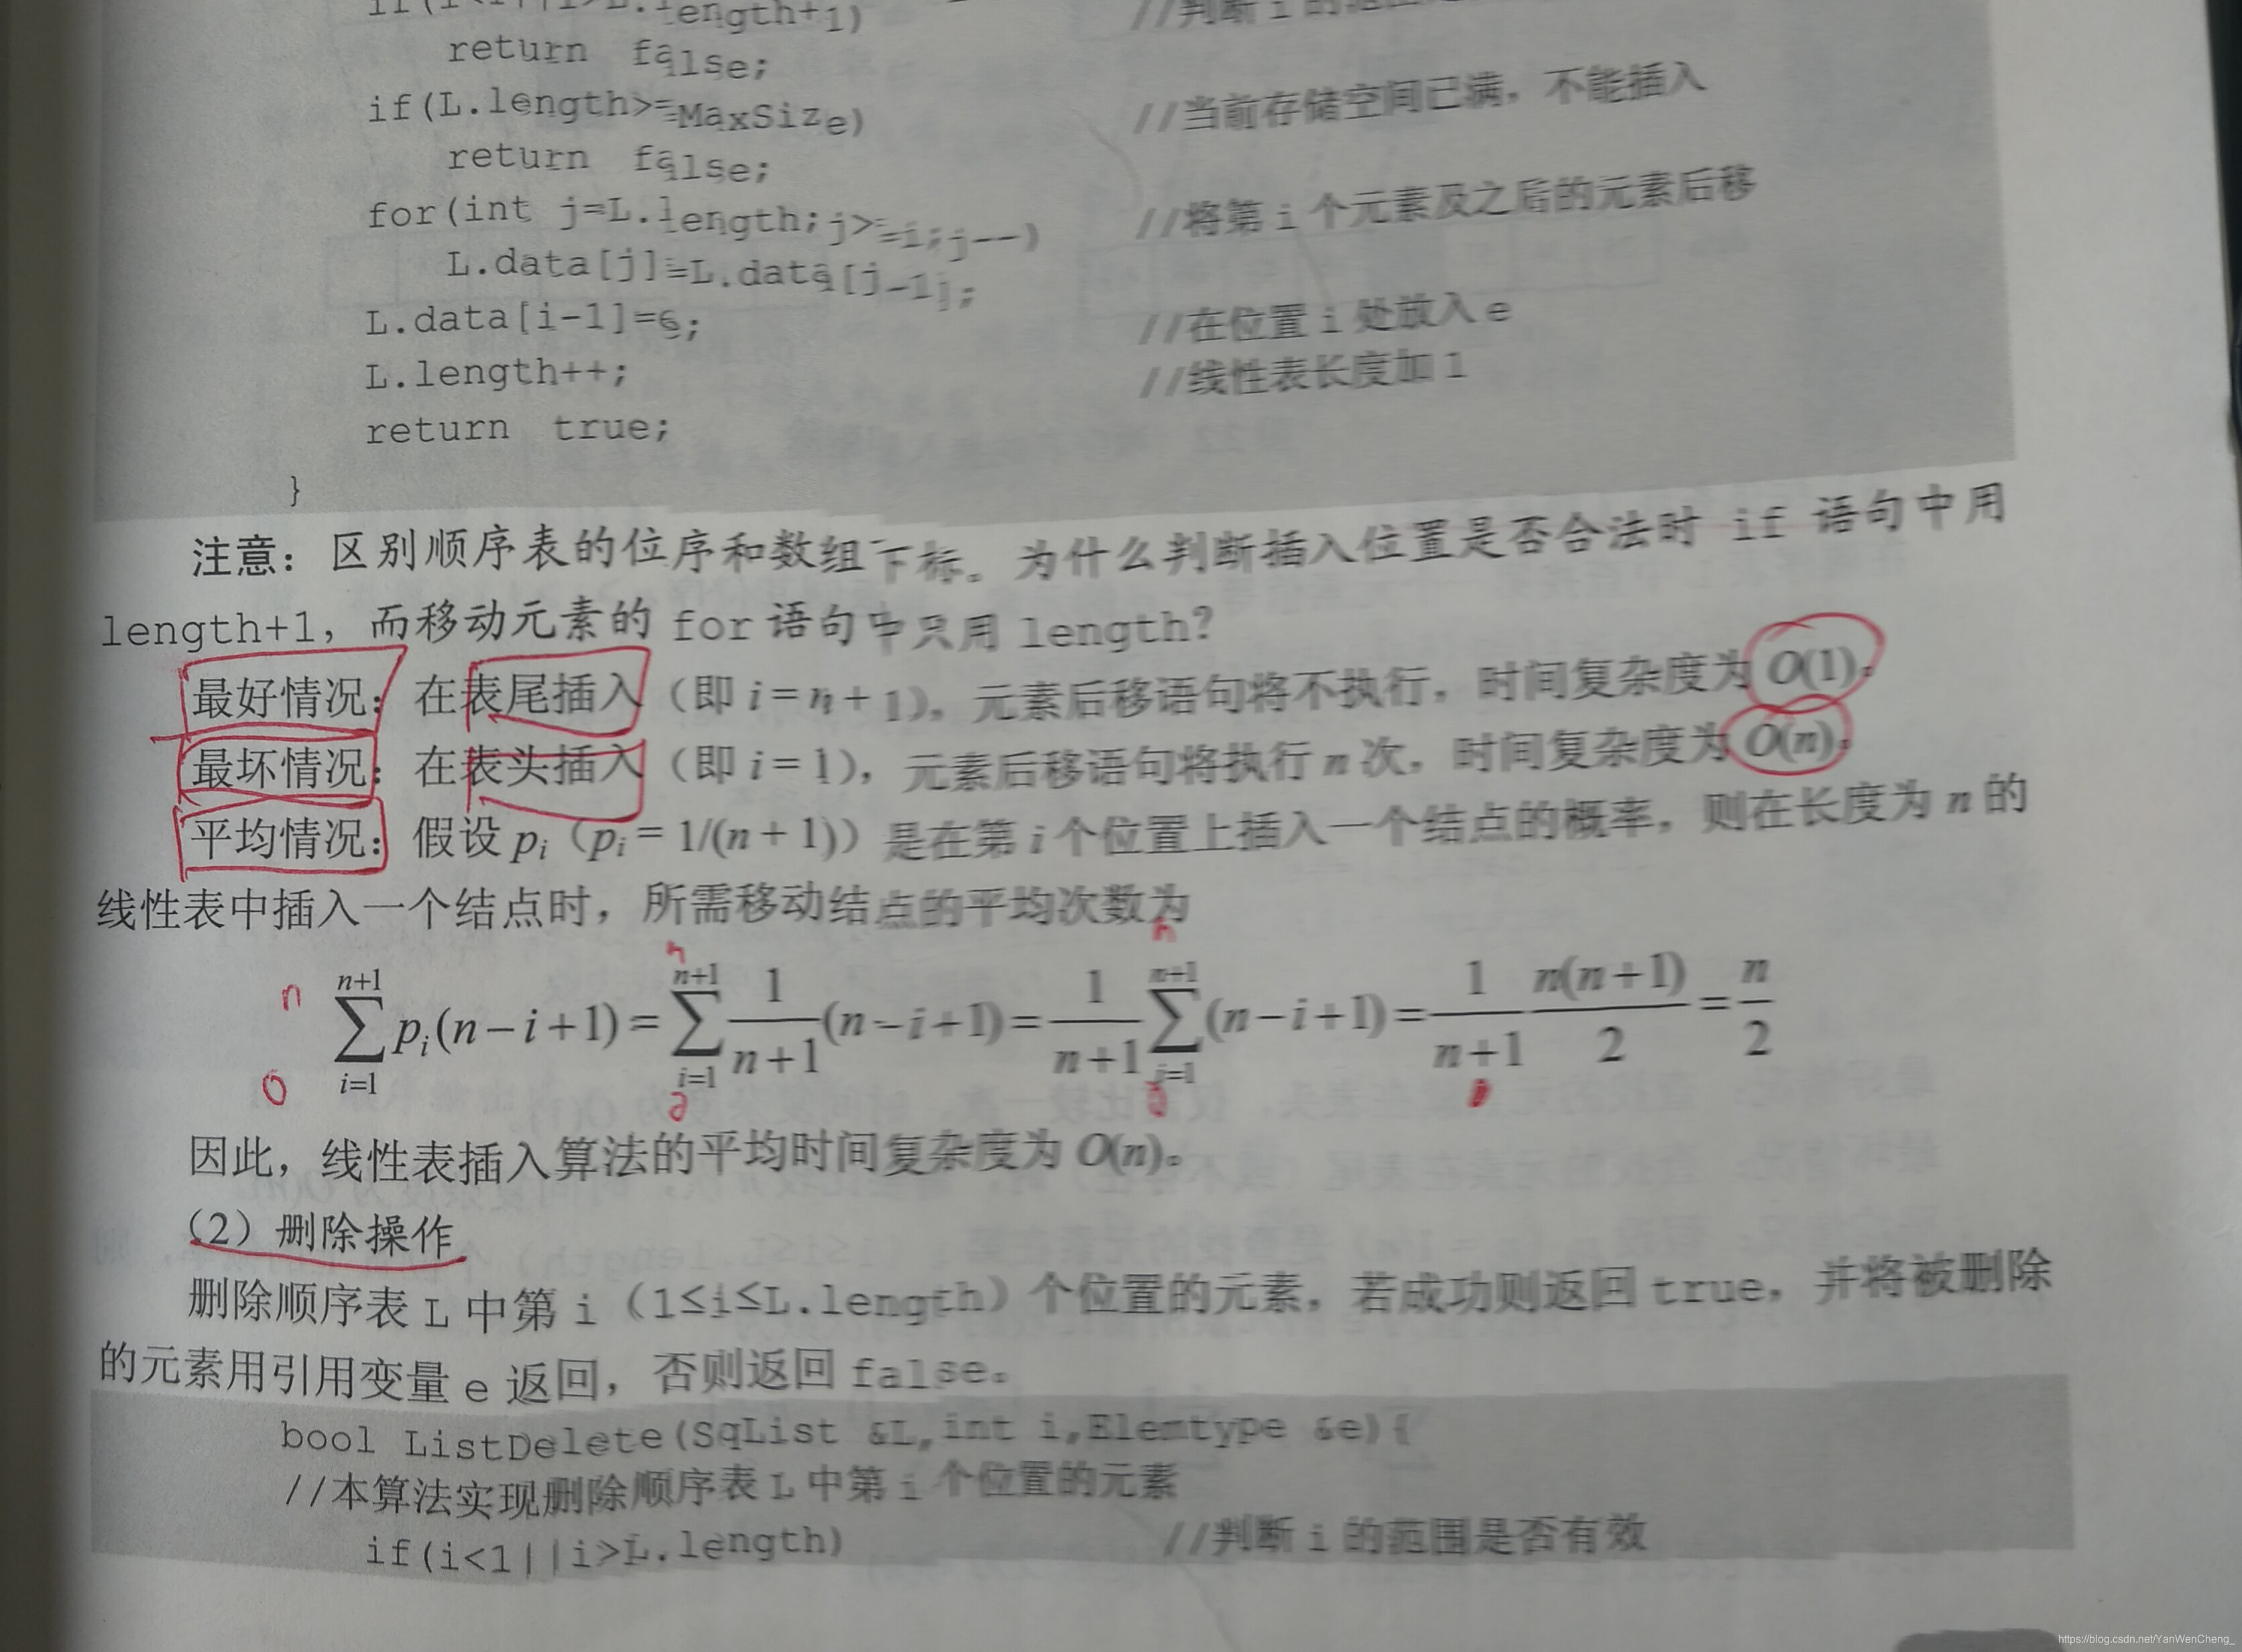 if(i<1||i>L.length+1) //判断 i 的范围
return false;
if(L.length>=MaxSize) //当前存储空间已满，不能插入
return false;
for(int j=L.length;j>=i;j--) //将第 i 个元素及之后的元素后移
L.data[j]=L.data[j-1];
L.data[i-1]=e; //在位置 i 处放入 e
L.length++; //线性表长度加 1
return true;
}
注意：区别顺序表的位序和数组下标。为什么判断插入位置是否合法时 if 语句中用
length+1，而移动元素的 for 语句中只用 length？
最好情况：在表尾插入（即 i = n + 1），元素后移语句将不执行，时间复杂度为 O(1)。
最坏情况：在表头插入（即 i = 1），元素后移语句将执行 n 次，时间复杂度为 O(n)。
平均情况：假设 pᵢ（pᵢ = 1/(n + 1)）是在第 i 个位置上插入一个结点的概率，则在长度为 n 的
线性表中插入一个结点时，所需移动结点的平均次数为
n n n
∑_{i=1}^{n+1} pᵢ(n−i+1) = ∑_{i=1}^{n+1} \frac{1}{n+1}(n−i+1) = \frac{1}{n+1} ∑_{i=1}^{n+1} (n−i+1) = \frac{1}{n+1} \frac{n(n+1)}{2} = \frac{n}{2}
0
因此，线性表插入算法的平均时间复杂度为 O(n)。
（2）删除操作
删除顺序表 L 中第 i（1≤i≤L.length）个位置的元素，若成功则返回 true，并将被删除
的元素用引用变量 e 返回，否则返回 false。
bool ListDelete(SqList &L,int i,Elemtype &e){
//本算法实现删除顺序表 L 中第 i 个位置的元素
if(i<1||i>L.length) //判断 i 的范围是否有效
https://blog.csdn.net/YanWenCheng_